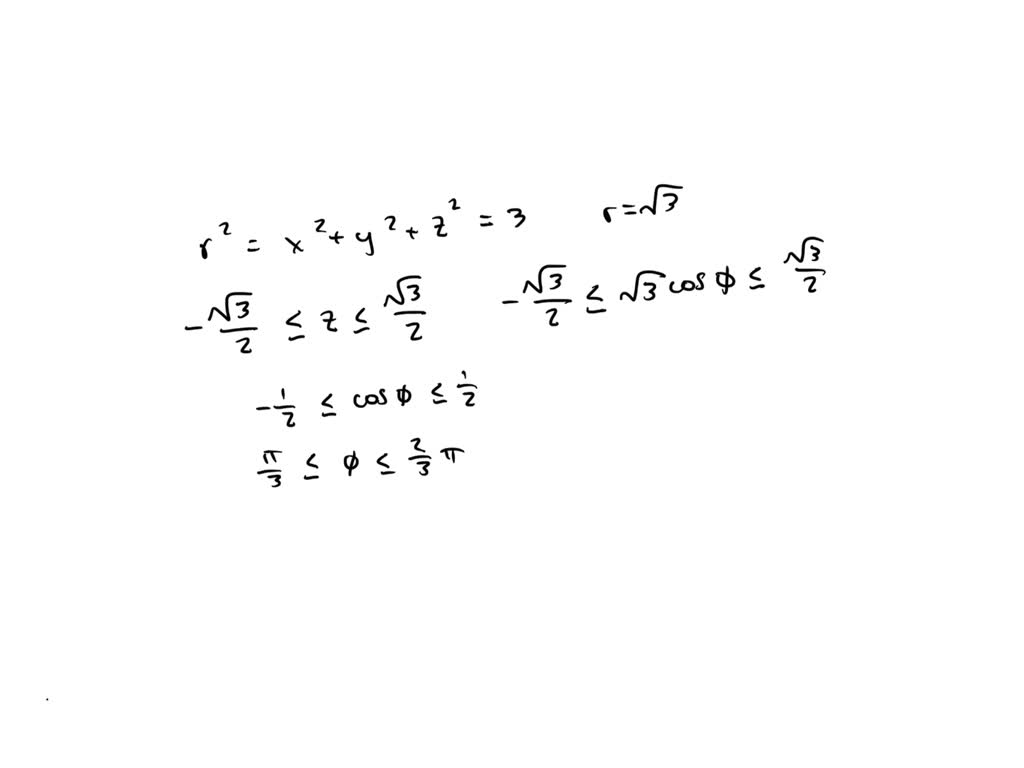 r² = x² + y² + z² = 3 r = √3
-√3/2 ≤ z ≤ √3/2 -√3/2 ≤ √3 cos ϕ ≤ √3/2
-1/2 ≤ cos ϕ ≤ 1/2
π/3 ≤ ϕ ≤ 2/3 π